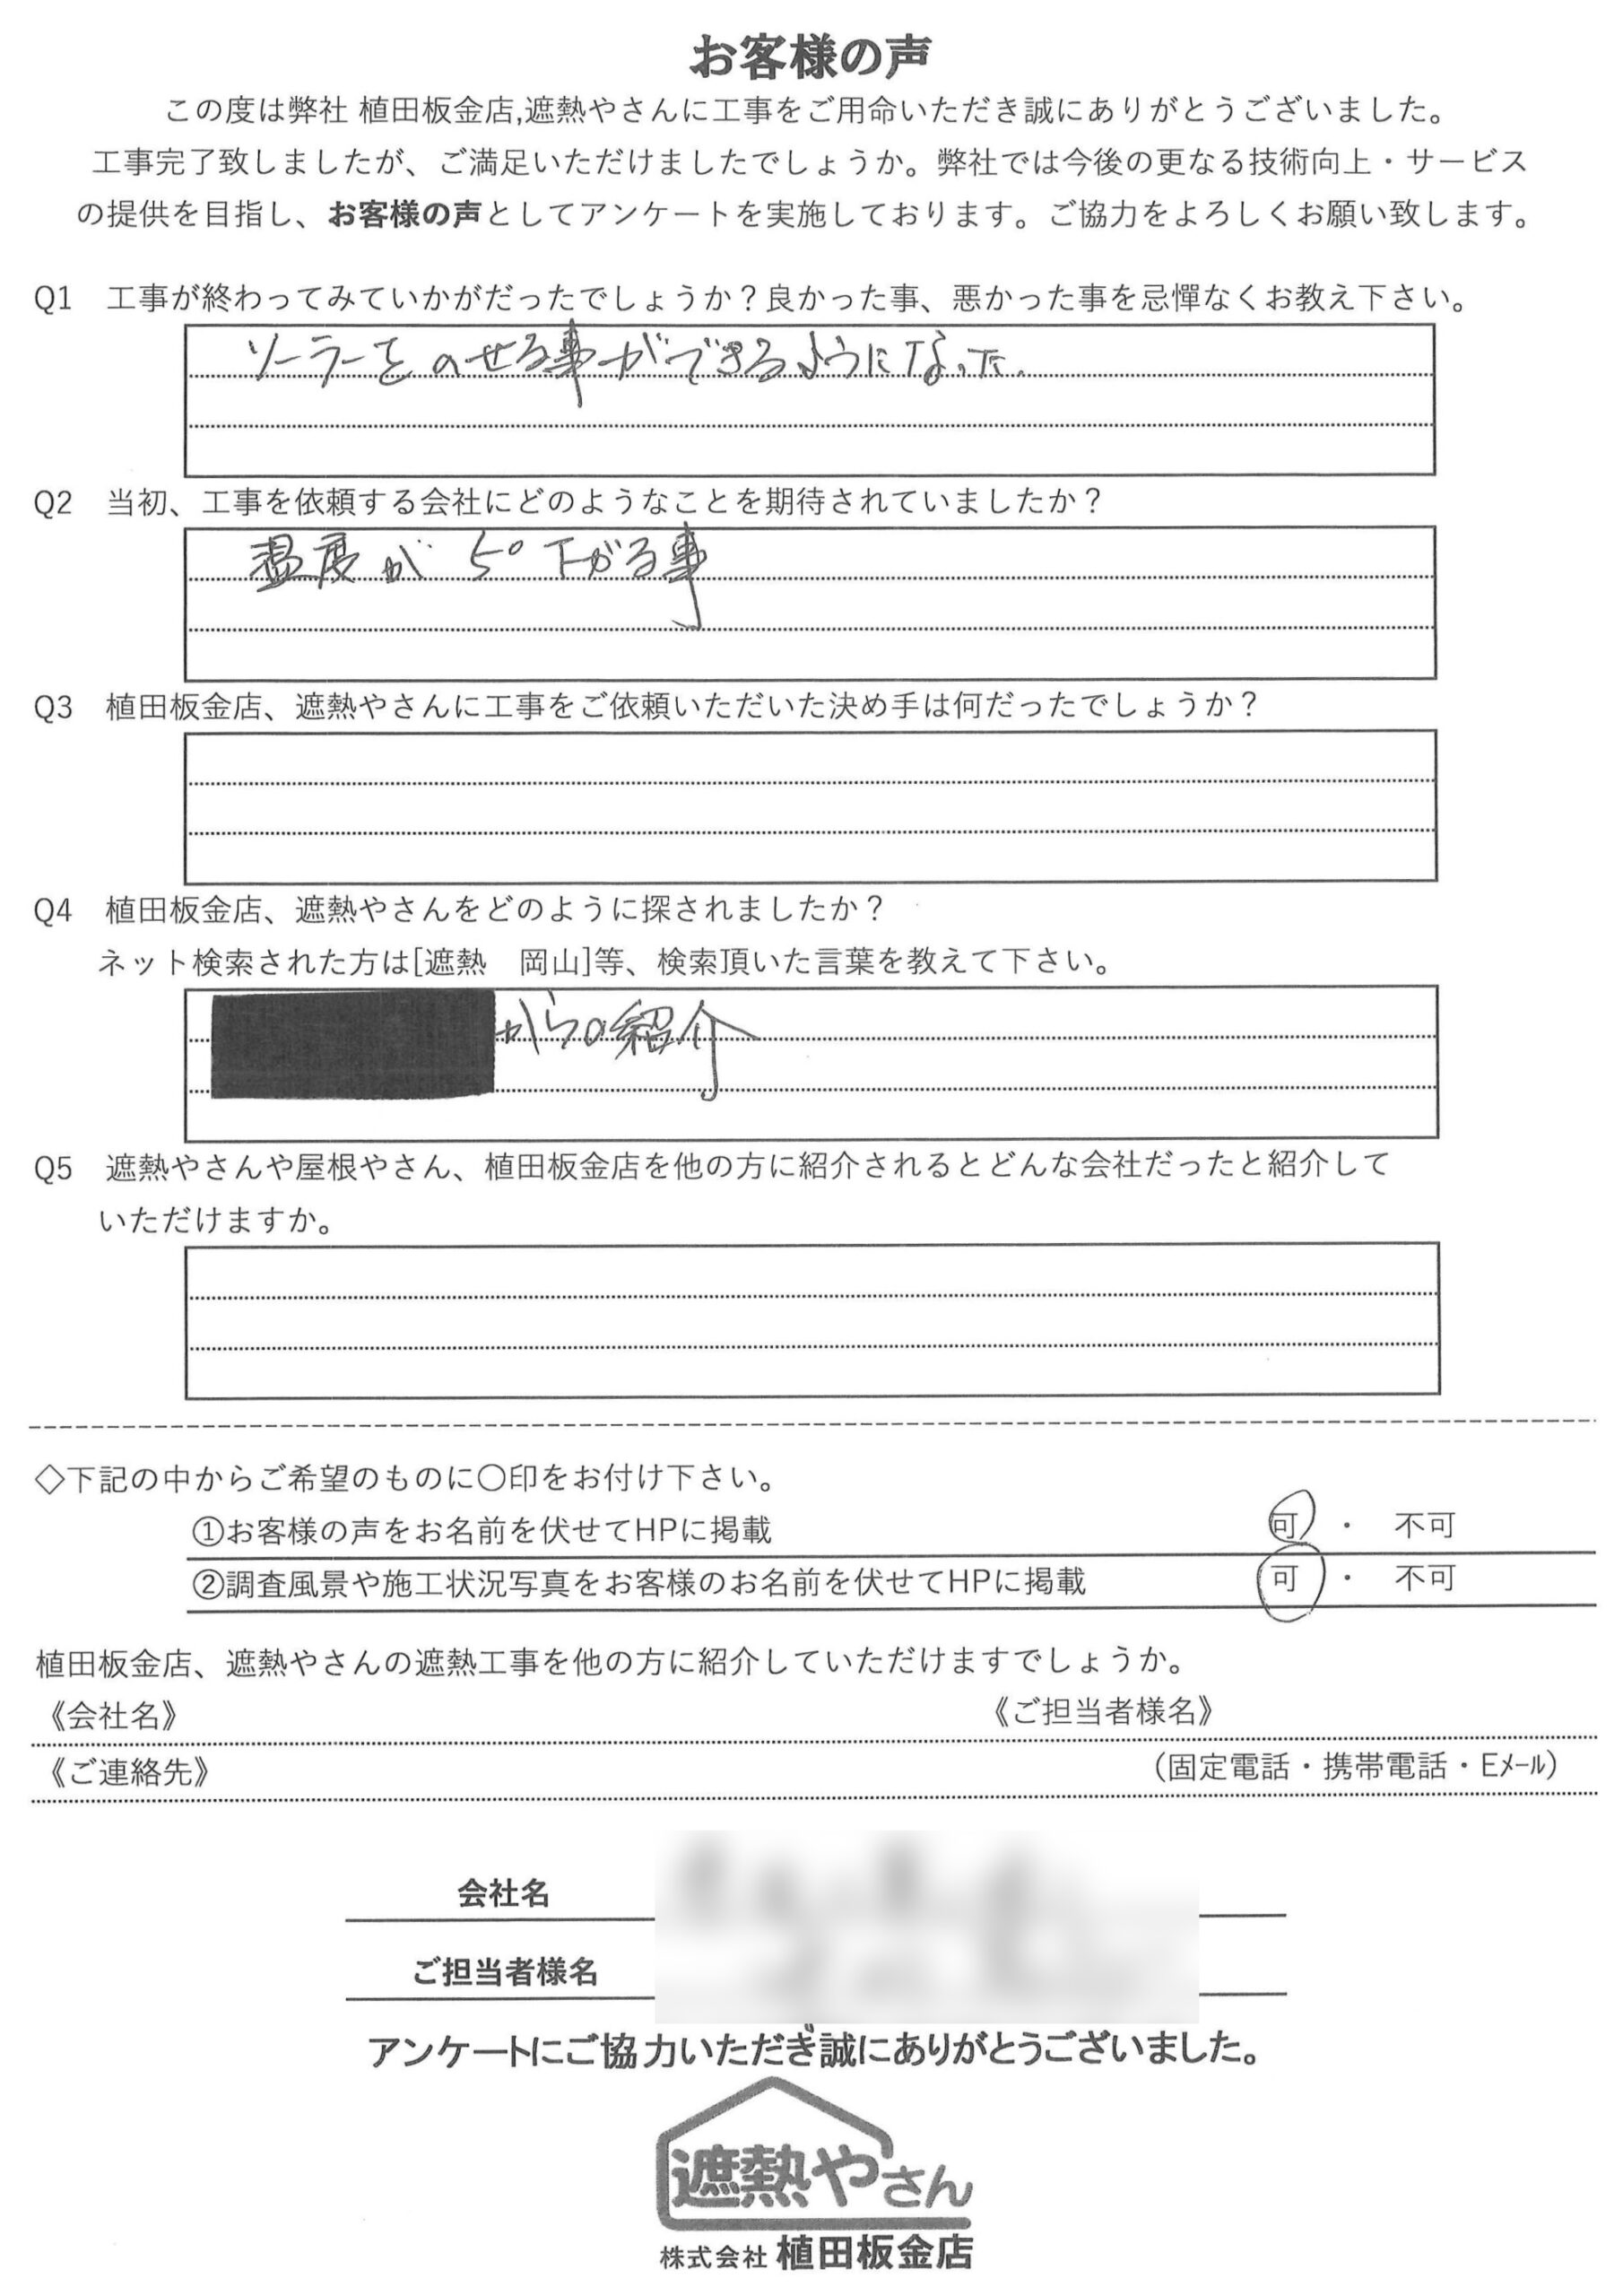 お客様の声
この度は弊社 植田板金店,遮熱やさんに工事をご用命いただき誠にありがとうございました。
工事完了致しましたが、ご満足いただけましたでしょうか。弊社では今後の更なる技術向上・サービス
の提供を目指し、お客様の声としてアンケートを実施しております。ご協力をよろしくお願い致します。
Q1 工事が終わってみていかがだったでしょうか？良かった事、悪かった事を忌憚なくお教え下さい。
ソーラーをのせる事ができるようになった。
Q2 当初、工事を依頼する会社にどのようなことを期待されていましたか？
温度が 5° 下がる事
Q3 植田板金店、遮熱やさんに工事をご依頼いただいた決め手は何だったでしょうか？
Q4 植田板金店、遮熱やさんをどのように探されましたか？
ネット検索された方は[遮熱 岡山]等、検索頂いた言葉を教えて下さい。
からの紹介
Q5 遮熱やさんや屋根やさん、植田板金店を他の方に紹介されるとどんな会社だったと紹介して
いただけますか。
◇下記の中からご希望のものに〇印をお付け下さい。
①お客様の声をお名前を伏せてHPに掲載 可 ・ 不可
②調査風景や施工状況写真をお客様のお名前を伏せてHPに掲載 可 ・ 不可
植田板金店、遮熱やさんの遮熱工事を他の方に紹介していただけますでしょうか。
《会社名》 《ご担当者様名》
《ご連絡先》 （固定電話・携帯電話・Eﾒｰﾙ）
会社名
ご担当者様名
アンケートにご協力いただき誠にありがとうございました。
遮熱やさん
株式会社 植田板金店